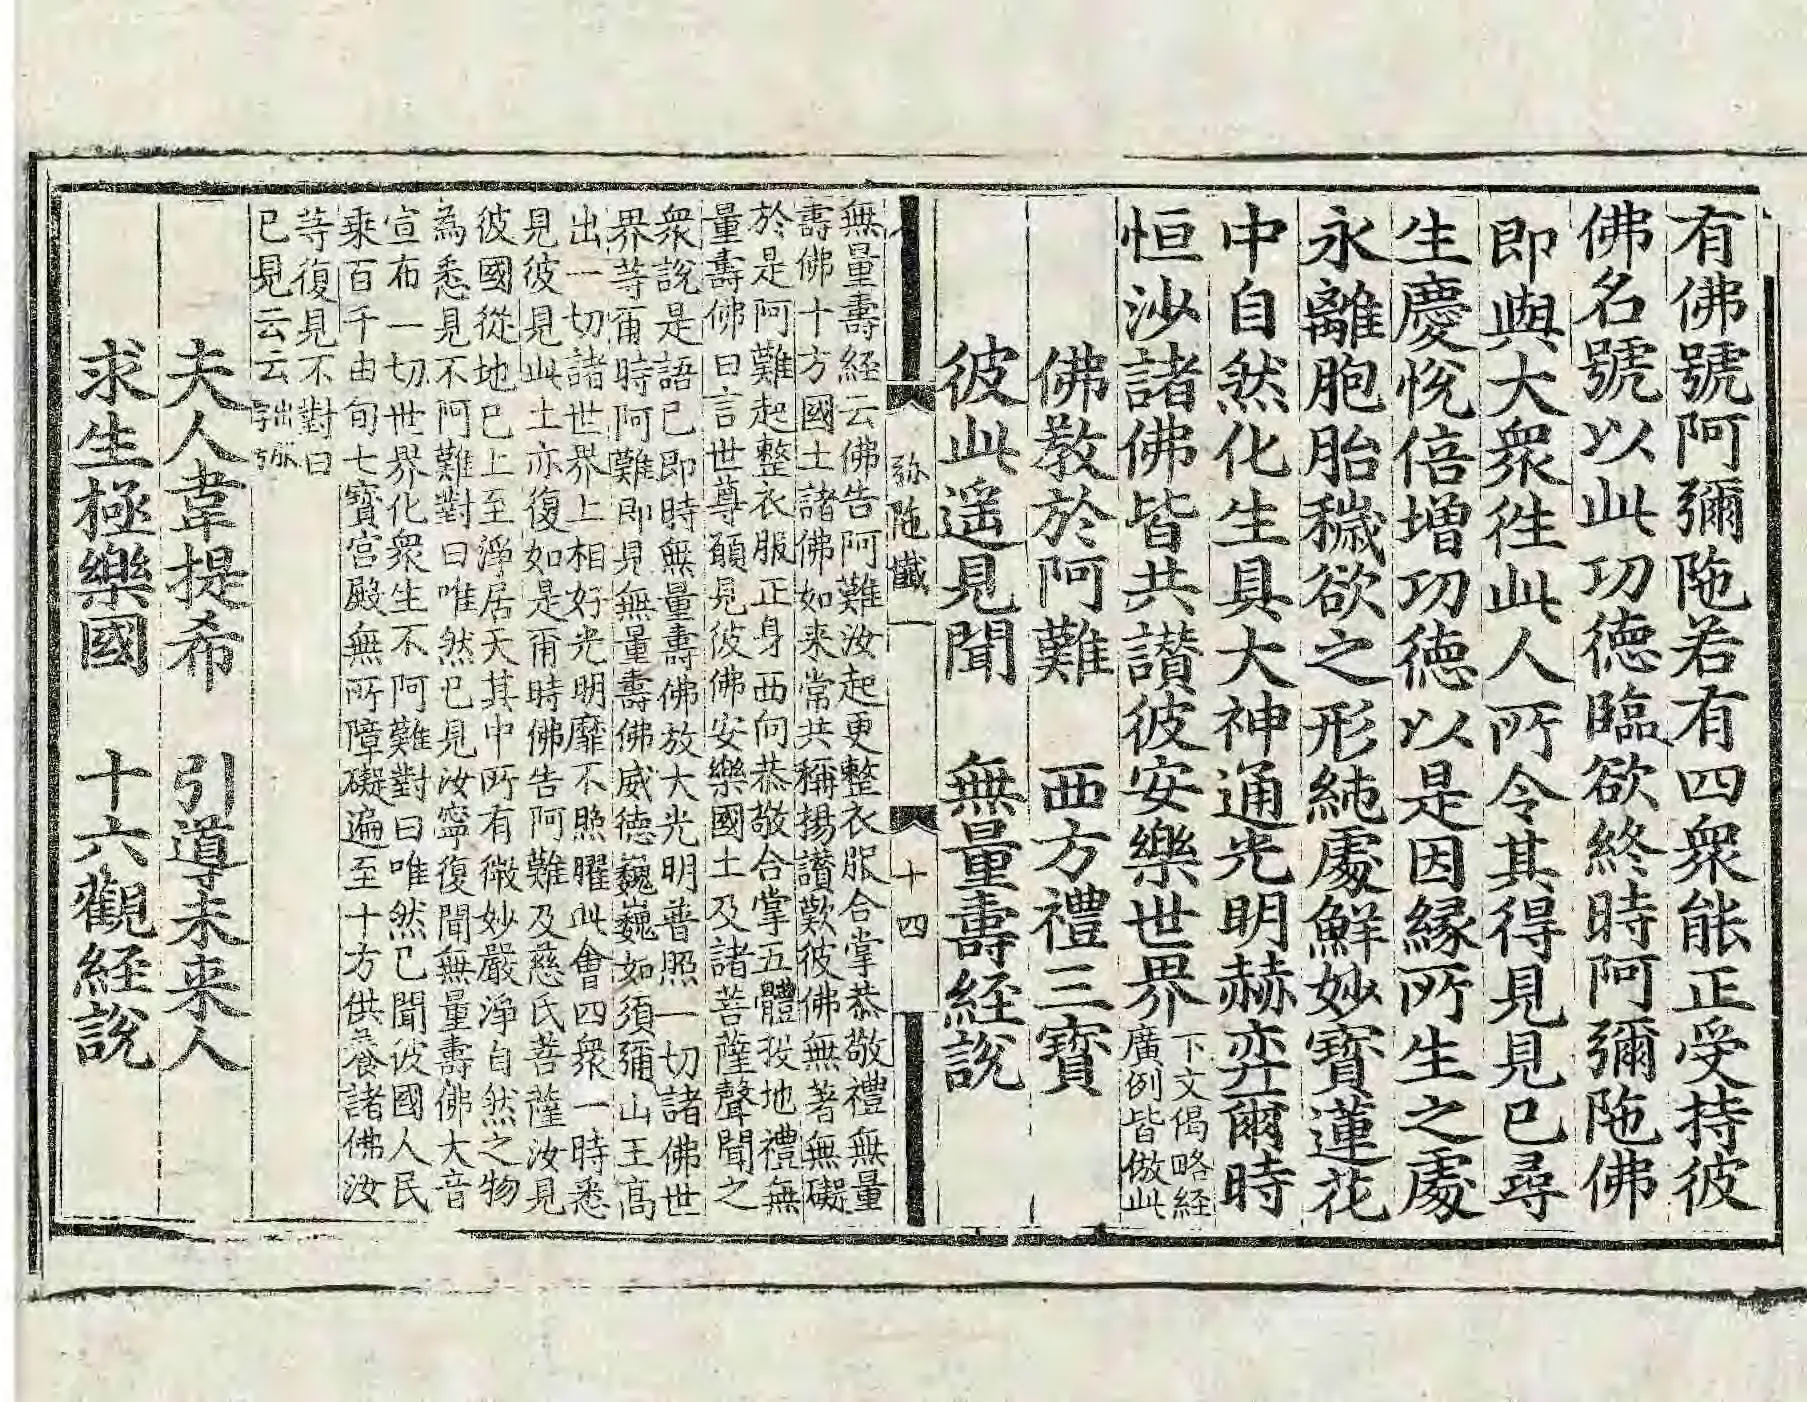 有佛號阿彌陁若有四衆能正受持彼
佛名號以此功德臨欲終時阿彌陁佛
即與大衆徃此人所令其得見見已尋
生慶悅倍增功德以是因緣所生之處
永離胞胎穢欲之形純處鮮妙寶蓮花
中自然化生具大神通光明赫弈爾時
恒沙諸佛皆共讃彼安樂世界
下文偈略経
廣例皆倣此
佛教於阿難　西方禮三寶
彼此遥見聞　無量壽経説
弥陁懺一
十四
無量壽経云佛告阿難汝起更整衣服合掌恭敬禮無量
壽佛十方國土諸佛如来常共稱揚讃歎彼佛無著無礙
於是阿難起整衣服正身西向恭敬合掌五體投地禮無
量壽佛曰言世尊願見彼佛安樂國土及諸菩薩聲聞之
衆說是語已即時無量壽佛放大光明普照一切諸佛世
界等爾時阿難即見無量壽佛威德巍巍如須彌山王高
出一切諸世界上相好光明靡不照曜此會四衆一時悉
見彼見此土亦復如是爾時佛告阿難及慈氏菩薩汝見
彼國從地已上至淨居天其中所有微妙嚴淨自然之物
為悉見不阿難對曰唯然已見汝寧復聞無量壽佛大音
宣布一切世界化衆生不阿難對曰唯然已聞彼國人民
乘百千由旬七寶宫殿無所障礙遍至十方供養諸佛汝
等復見不對曰
已見云云
夫人韋提希　引導未来人
求生極樂國　十六觀経說